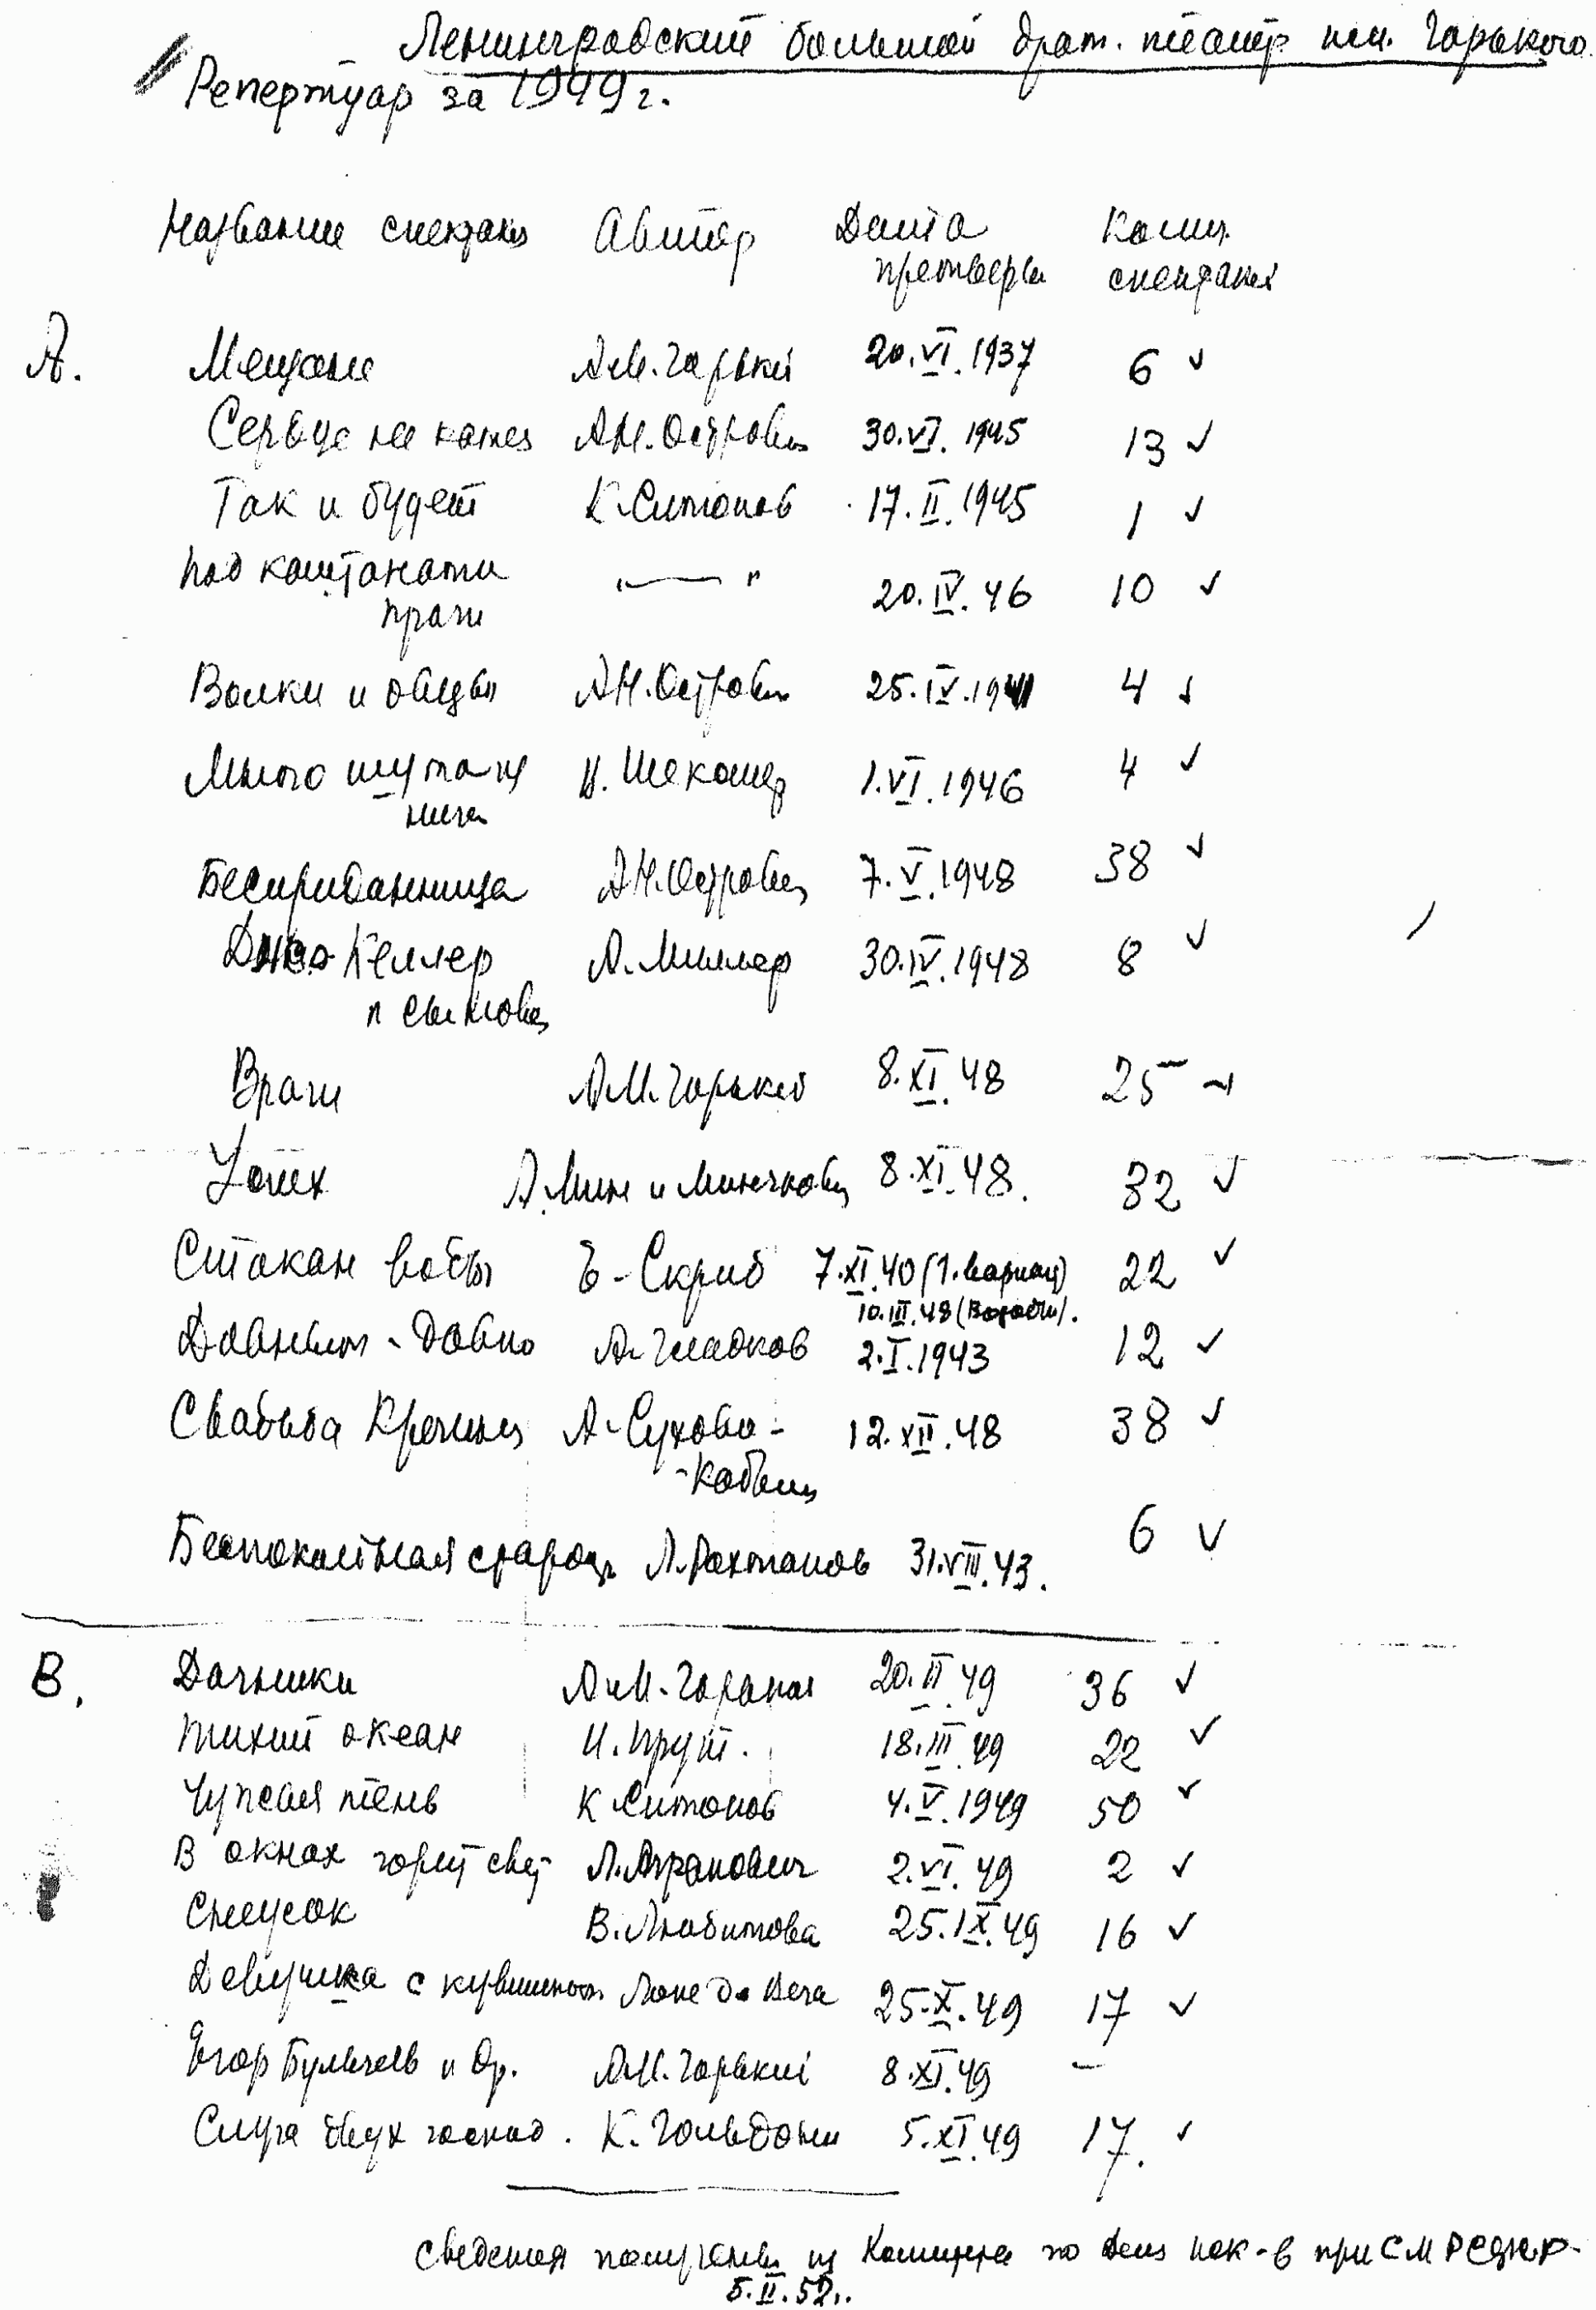 Ленинградский большой драм. театр им. Горького.
Репертуар за 1949 г.
Название спектакля Автор Дата премьеры Колич. спектаклей
А. Мещане А.М. Горький 20.VI.1937 6 ✓
Сердце не камень А.Н. Островск 30.VI.1945 13 ✓
Так и будет К. Симонов 17.II.1945 1 ✓
Под каштанами Праги " — " 20.IV.46 10 ✓
Волки и овцы А.Н. Островск 25.IV.1941 4 ✓
Много шума из ничего Шекспир 1.VI.1946 4 ✓
Бесприданница А.Н. Островск 7.V.1948 38 ✓
Джо Келлер и сыновья А. Миллер 30.IV.1948 8 ✓
Враги А.М. Горький 8.XI.48 25 ✓
Успех А. Мин и Минчковск 8.XI.48. 32 ✓
Стакан воды Э. Скриб 7.XI.40 (1. вариант) 22 ✓
10.III.48 (Возобн).
Давным-давно А. Гладков 2.I.1943 12 ✓
Свадьба Кречинск А. Сухово-
-Кобылин 12.XII.48 38 ✓
Беспокойная старость Л. Рахманов 31.VIII.43. 6 ✓
В. Дачники А.М. Горький 20.II.49 36 ✓
Тихий океан И. Прут. 18.III.49 22 ✓
Чужая тень К. Симонов 4.V.1949 50 ✓
В окнах горит свет Л. Агранович 2.VI.49 2 ✓
Снежок В. Любимова 25.IX.49 16 ✓
Девушка с кувшином Лопе де Вега 25.X.49 17 ✓
Егор Булычев и др. А.М. Горький 8.XI.49 —
Слуга двух господ. К. Гольдони 5.XI.49 17. ✓
Сведения получены из Комитета по делам иск-в при СМ РСФСР.
5.II.52.